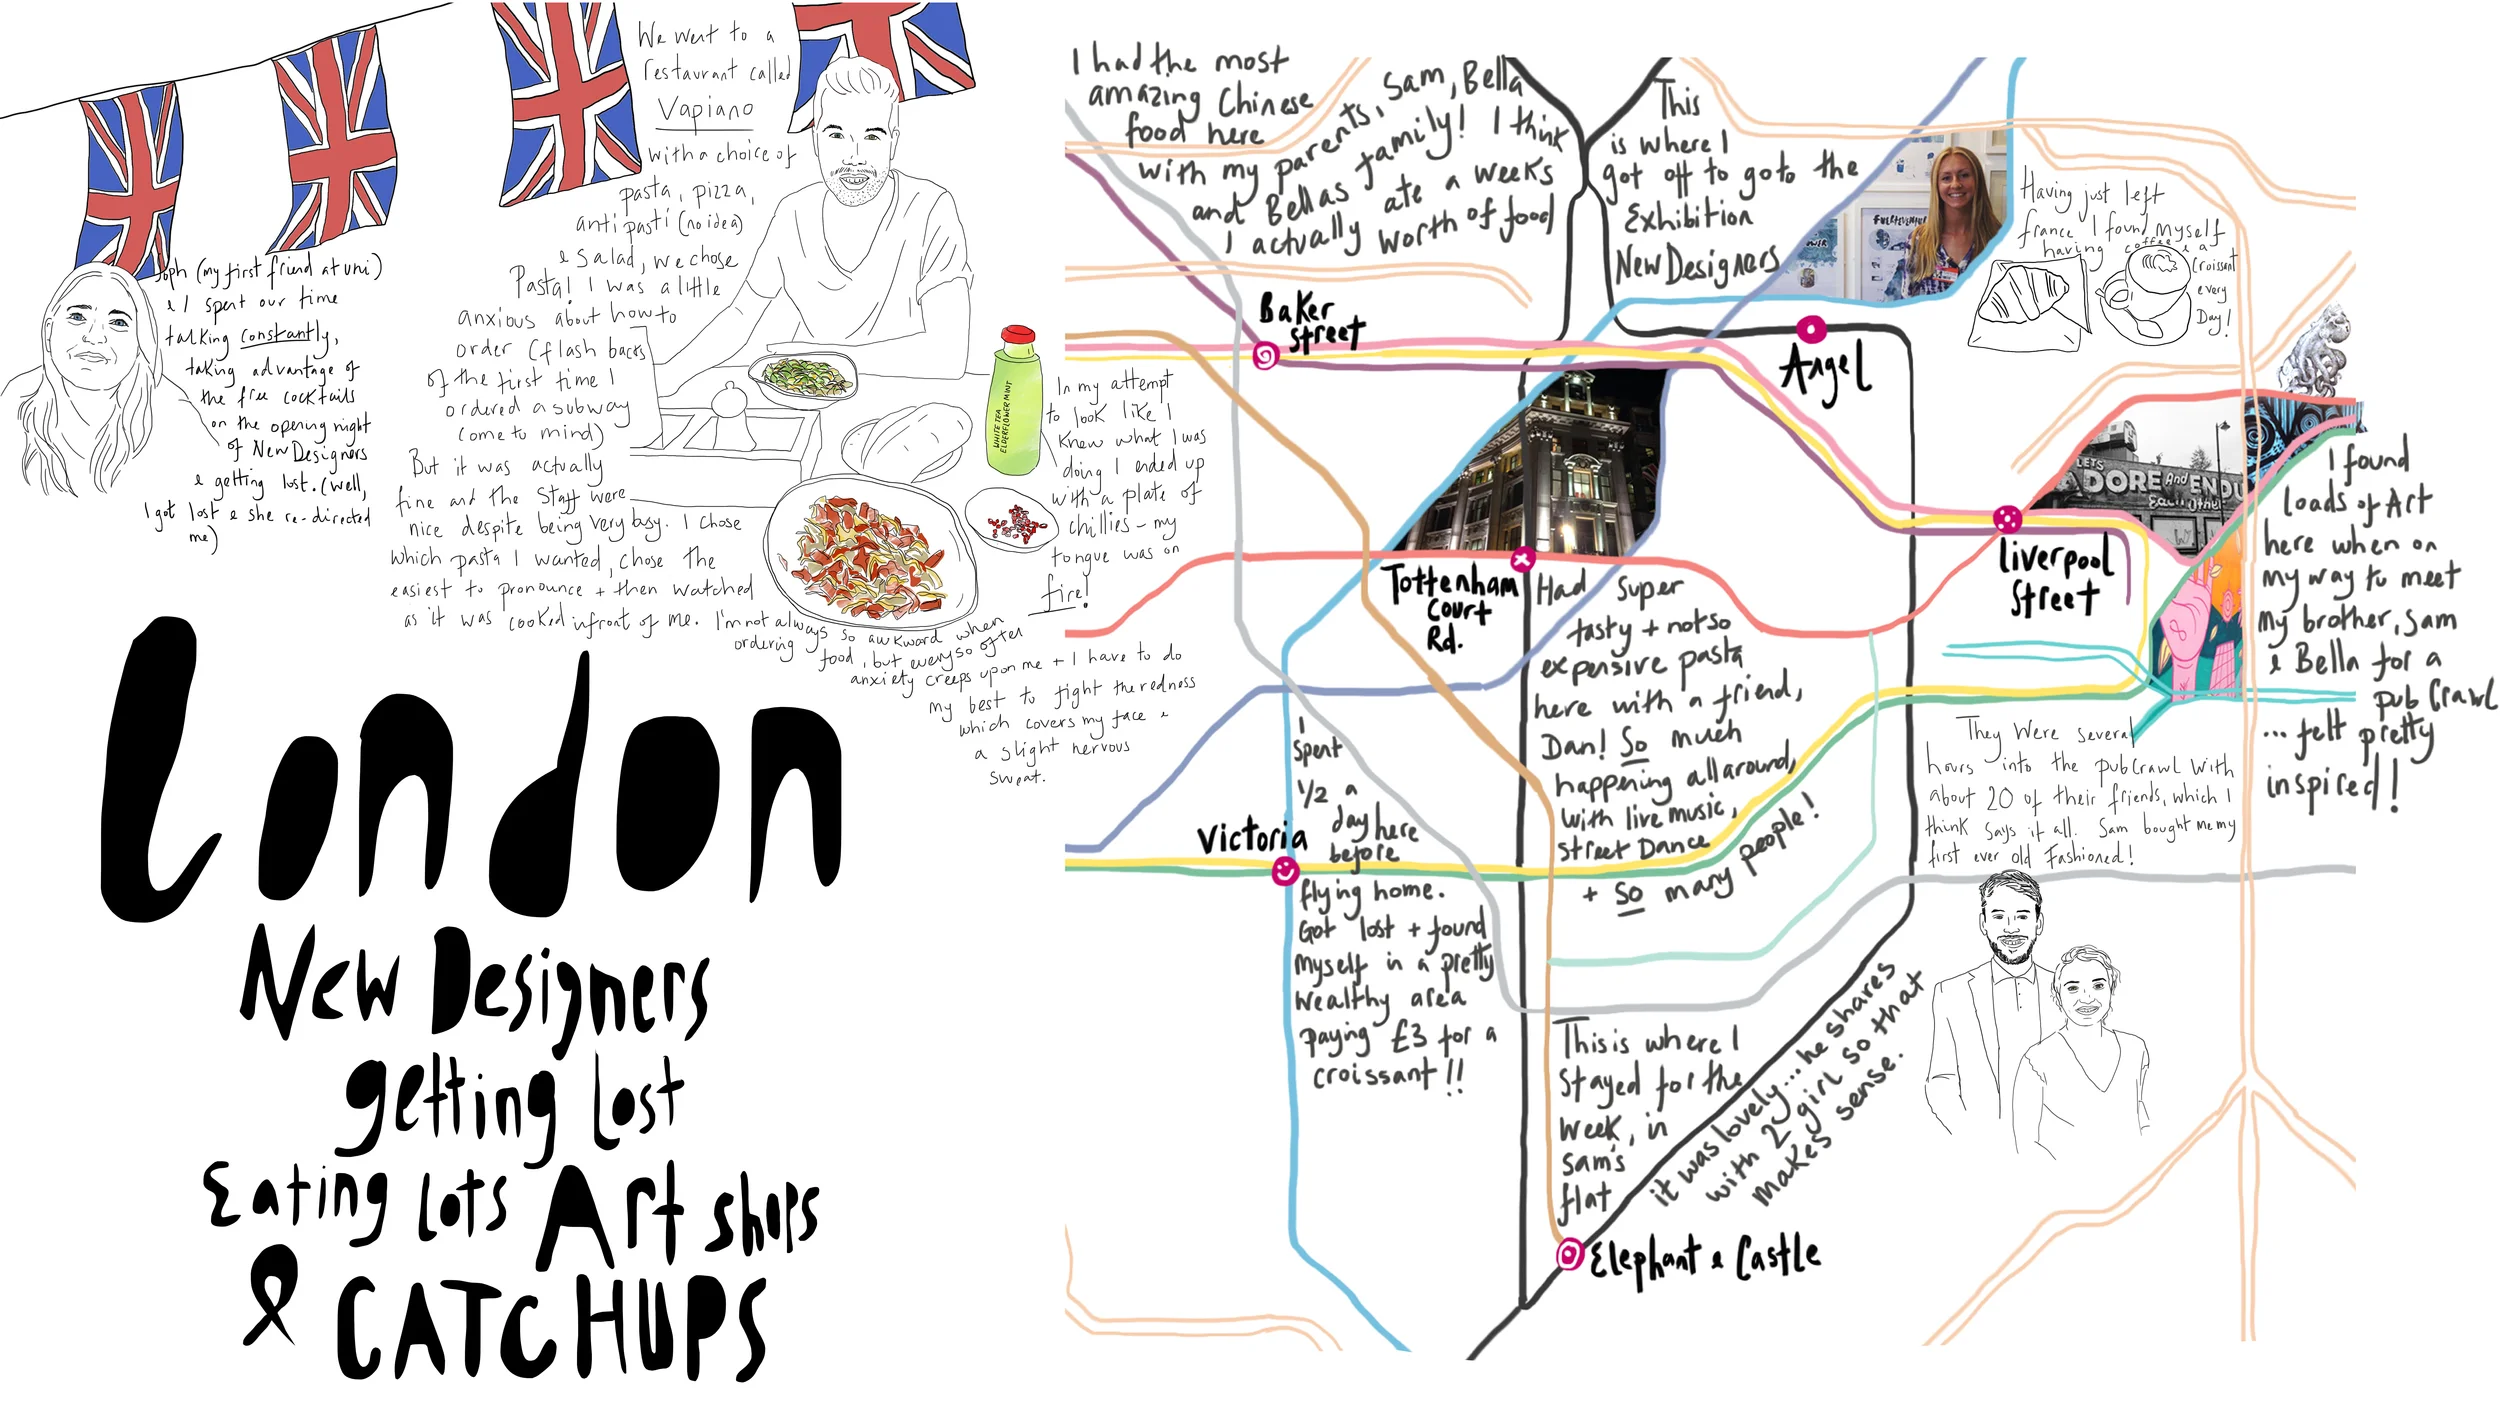 We went to a
restaurant called
Vapiano
with a choice of
pasta, pizza,
antipasti (no idea)
& salad, we chose
Pasta! I was a little
anxious about how to
order (flash backs
of the first time I
ordered a subway
come to mind)
But it was actually
fine and the staff were
nice despite being very busy. I chose
which pasta I wanted, chose the
easiest to pronounce + then watched
as it was cooked infront of me. I'm not always so awkward when
ordering food, but every so often
anxiety creeps upon me + I have to do
my best to fight the redness
which covers my face &
a slight nervous
sweat.
Soph (my first friend at uni)
& I spent our time
talking constantly,
taking advantage of
the free cocktails
on the opening night
of New Designers
& getting lost. (well,
I got lost & she re-directed
me)
WHITE TEA
ELDERFLOWER MINT
In my attempt
to look like I
knew what I was
doing I ended up
with a plate of
chillies - my
tongue was on
fire!
London
New Designers
getting lost
Eating lots Art shops
& CATCHUPS
I had the most
amazing Chinese
food here
with my parents, Sam, Bella
and Bellas family! I think
I actually ate a weeks
worth of food
This
is where I
got off to go to the
Exhibition
New Designers
Having just left
france I found myself
having coffee & a
Croissant
every
Day!
Baker
Street
Angel
LETS
ADORE And ENDU
Each Other
Liverpool
Street
I found
loads of Art
here when on
my way to meet
my brother, Sam
& Bella for a
pub crawl
... felt pretty
inspired!
Tottenham
Court
Rd.
Had super
tasty + not so
expensive pasta
here with a friend,
Dan! So much
happening all around,
with live music,
street Dance
+ so many people!
They were several
hours into the pubcrawl with
about 20 of their friends, which I
think says it all. Sam bought me my
first ever old Fashioned!
Victoria
I
Spent
1/2 a
day here
before
flying home.
Got lost + found
myself in a pretty
wealthy area
paying £3 for a
croissant!!
This is where I
stayed for the
week, in
Sam's
flat
it was lovely... he shares
with 2 girl so that
makes sense.
Elephant & Castle